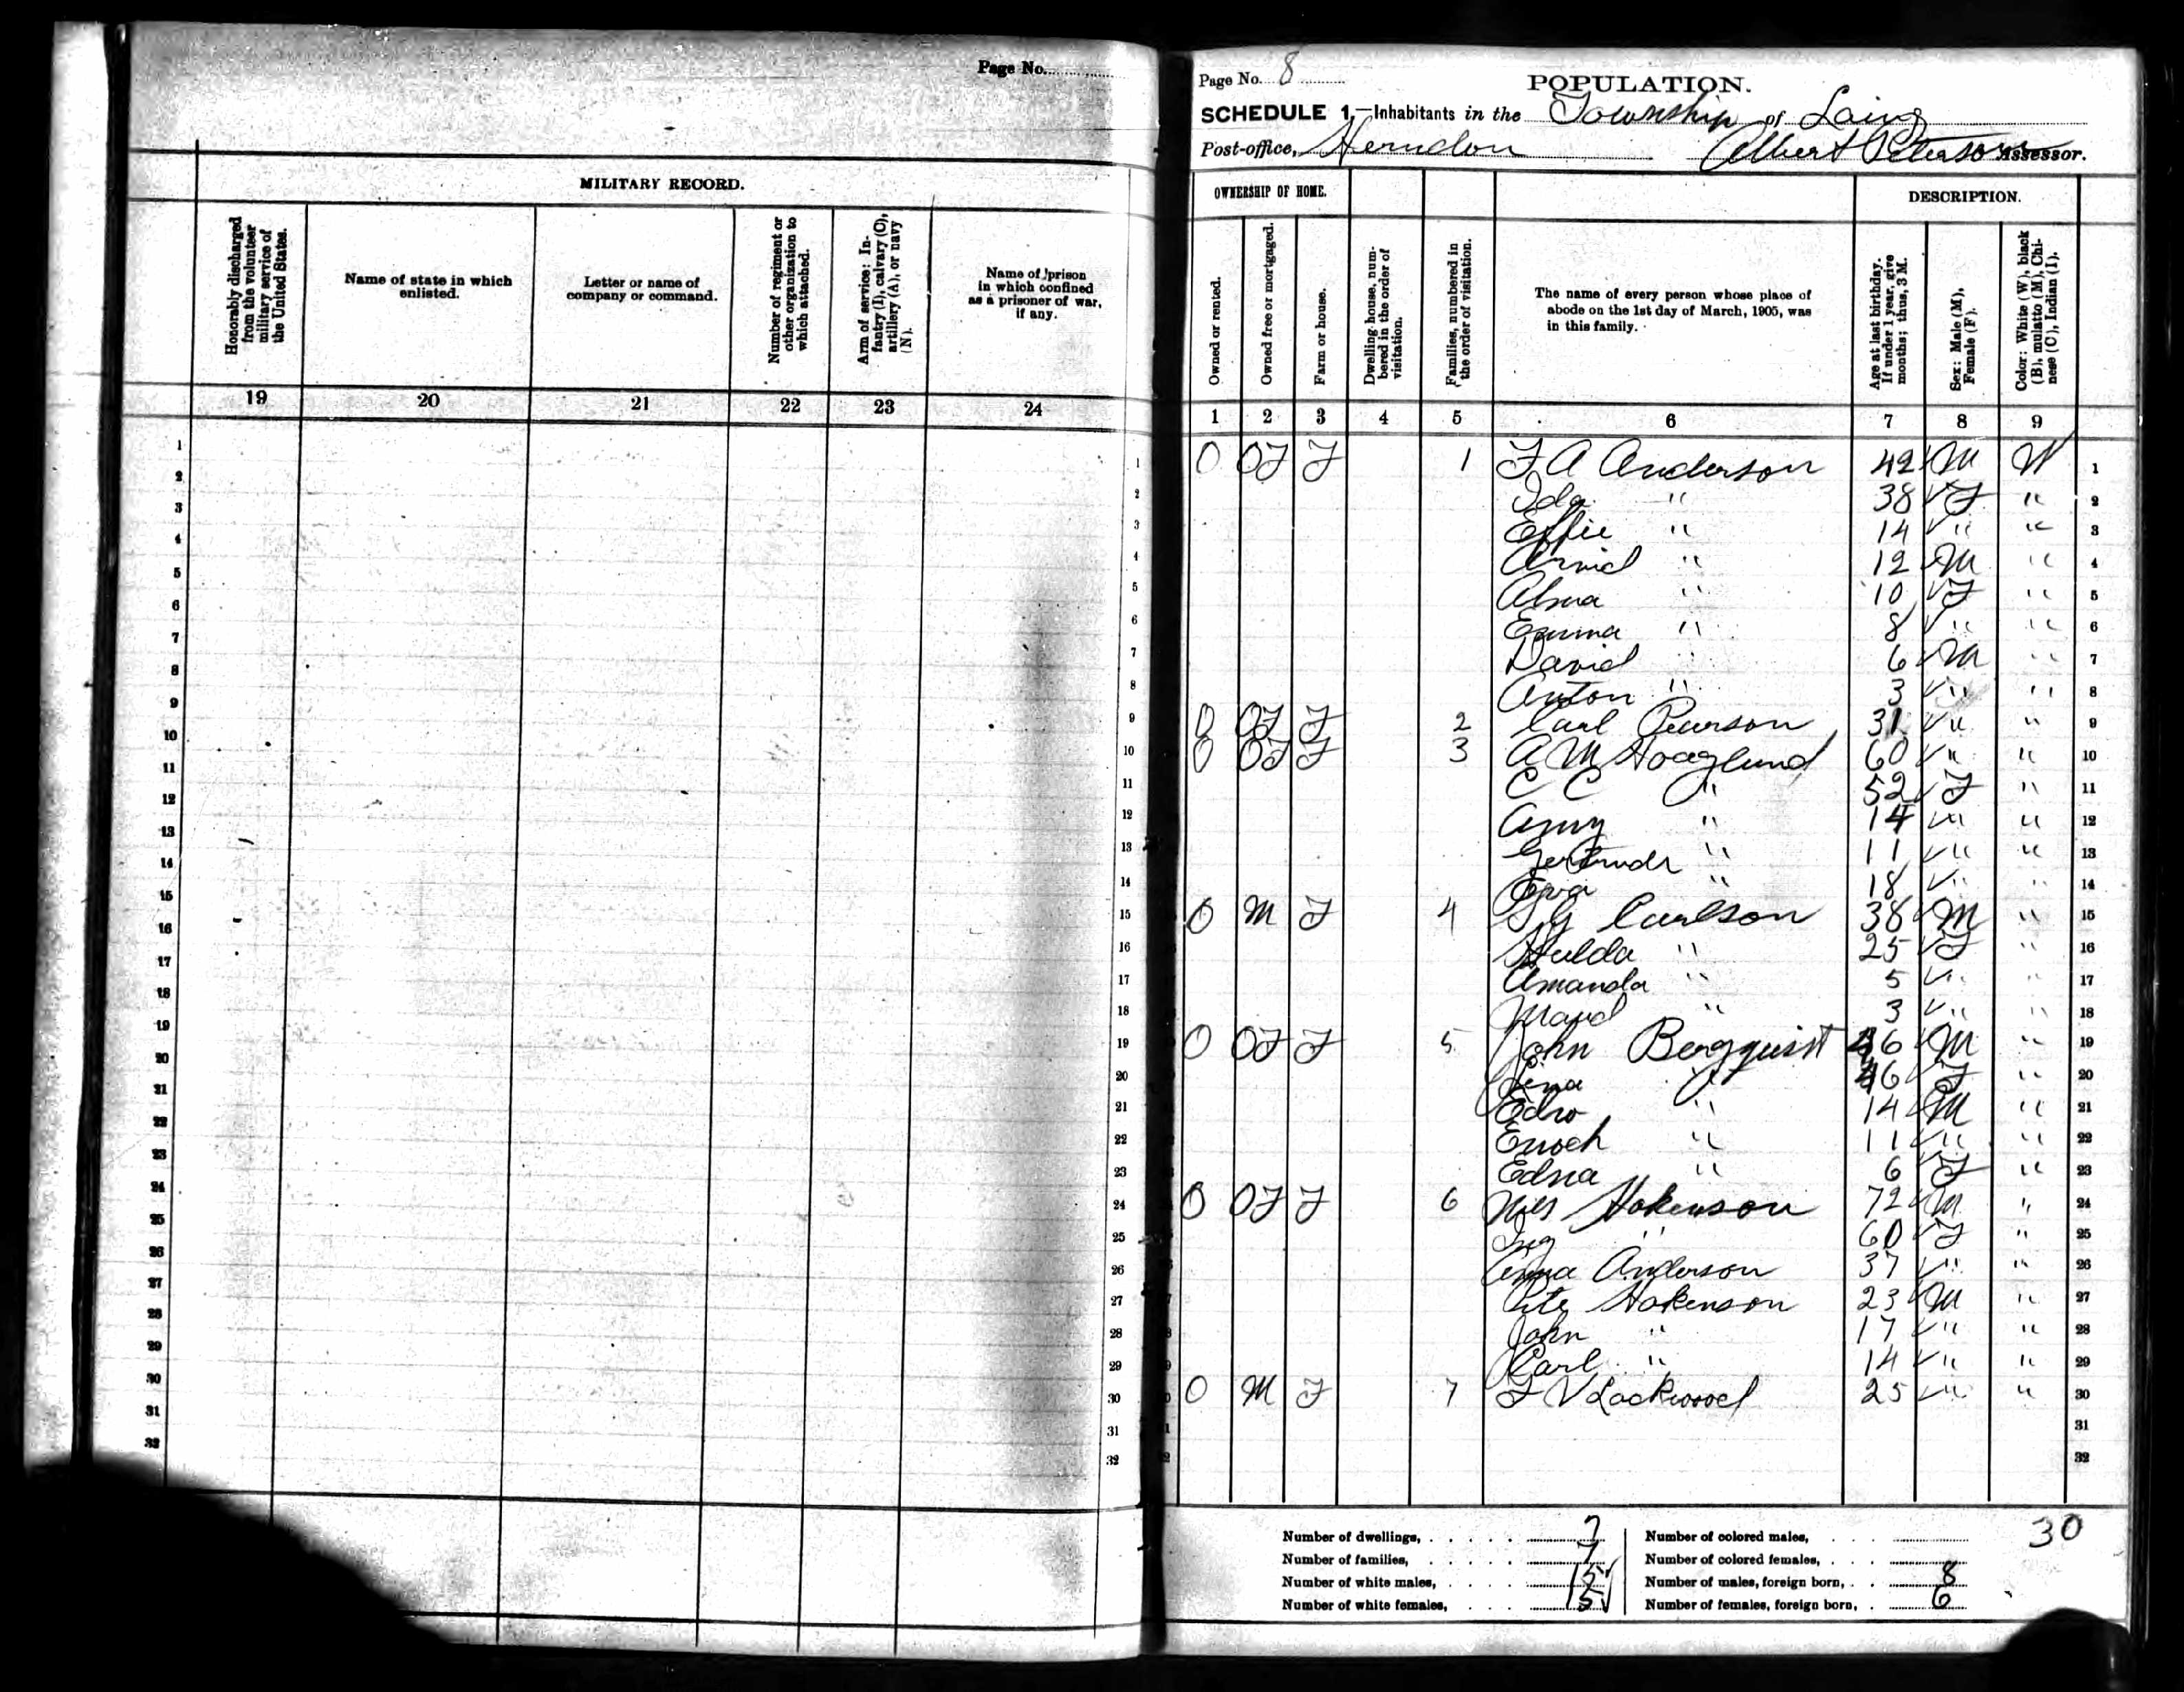 Page No.
MILITARY RECORD.
Honorably discharged from the volunteer military service of the United States.
Name of state in which enlisted.
Letter or name of company or command.
Number of regiment or other organization to which attached.
Arm of service: Infantry (I), calvary (C), artillery (A), or navy (N).
Name of prison in which confined as a prisoner of war, if any.
19 20 21 22 23 24
1 1
2 2
3 3
4 4
5 5
6 6
7 7
8 8
9 9
10 10
11 11
12 12
13 13
14 14
15 15
16 16
17 17
18 18
19 19
20 20
21 21
22 22
23 23
24 24
25 25
26 26
27 27
28 28
29 29
30 30
31 31
32 32
Page No. 8
POPULATION.
SCHEDULE 1.—Inhabitants in the Township of Laing
Post-office, Herndon Albert Peterson Assessor.
OWNERSHIP OF HOME. DESCRIPTION.
Owned or rented.
Owned free or mortgaged.
Farm or house.
Dwelling-house, numbered in the order of visitation.
Families, numbered in the order of visitation.
The name of every person whose place of abode on the 1st day of March, 1905, was in this family.
Age at last birthday. If under 1 year, give months; thus, 3 M.
Sex: Male (M), Female (F).
Color: White (W), black (B), mulatto (M), Chinese (C), Indian (I).
1 2 3 4 5 6 7 8 9
O OF F 1 F A Anderson 42 M W 1
Ida " 38 F " 2
Effie " 14 " " 3
Arvid " 12 M " 4
Alma " 10 F " 5
Emma " 8 " " 6
David " 6 M " 7
Anton " 3 " " 8
O OF F 2 Carl Pearson 31 " " 9
O OF F 3 A M Hoaglund 60 " " 10
C C " 52 F " 11
Amy " 14 " " 12
Gertrude " 11 " " 13
Eva " 18 " " 14
O M F 4 Carlson 38 M " 15
Hulda " 25 F " 16
Amanda " 5 " " 17
Maud " 3 " " 18
O OF F 5 John Bergquist 46 M " 19
Lina " 46 F " 20
Edw " 14 M " 21
Enoch " 11 " " 22
Edna " 6 F " 23
O OF F 6 Nels Hokenson 72 M " 24
" 60 F " 25
Anna Anderson 37 " " 26
Pete Hokenson 23 M " 27
John " 17 " " 28
Carl " 14 " " 29
O M F 7 F V Lockwood 25 " " 30
31
32
Number of dwellings, 7 Number of colored males, 30
Number of families, 7 Number of colored females,
Number of white males, 15 Number of males, foreign born, 8
Number of white females, 15 Number of females, foreign born, 6